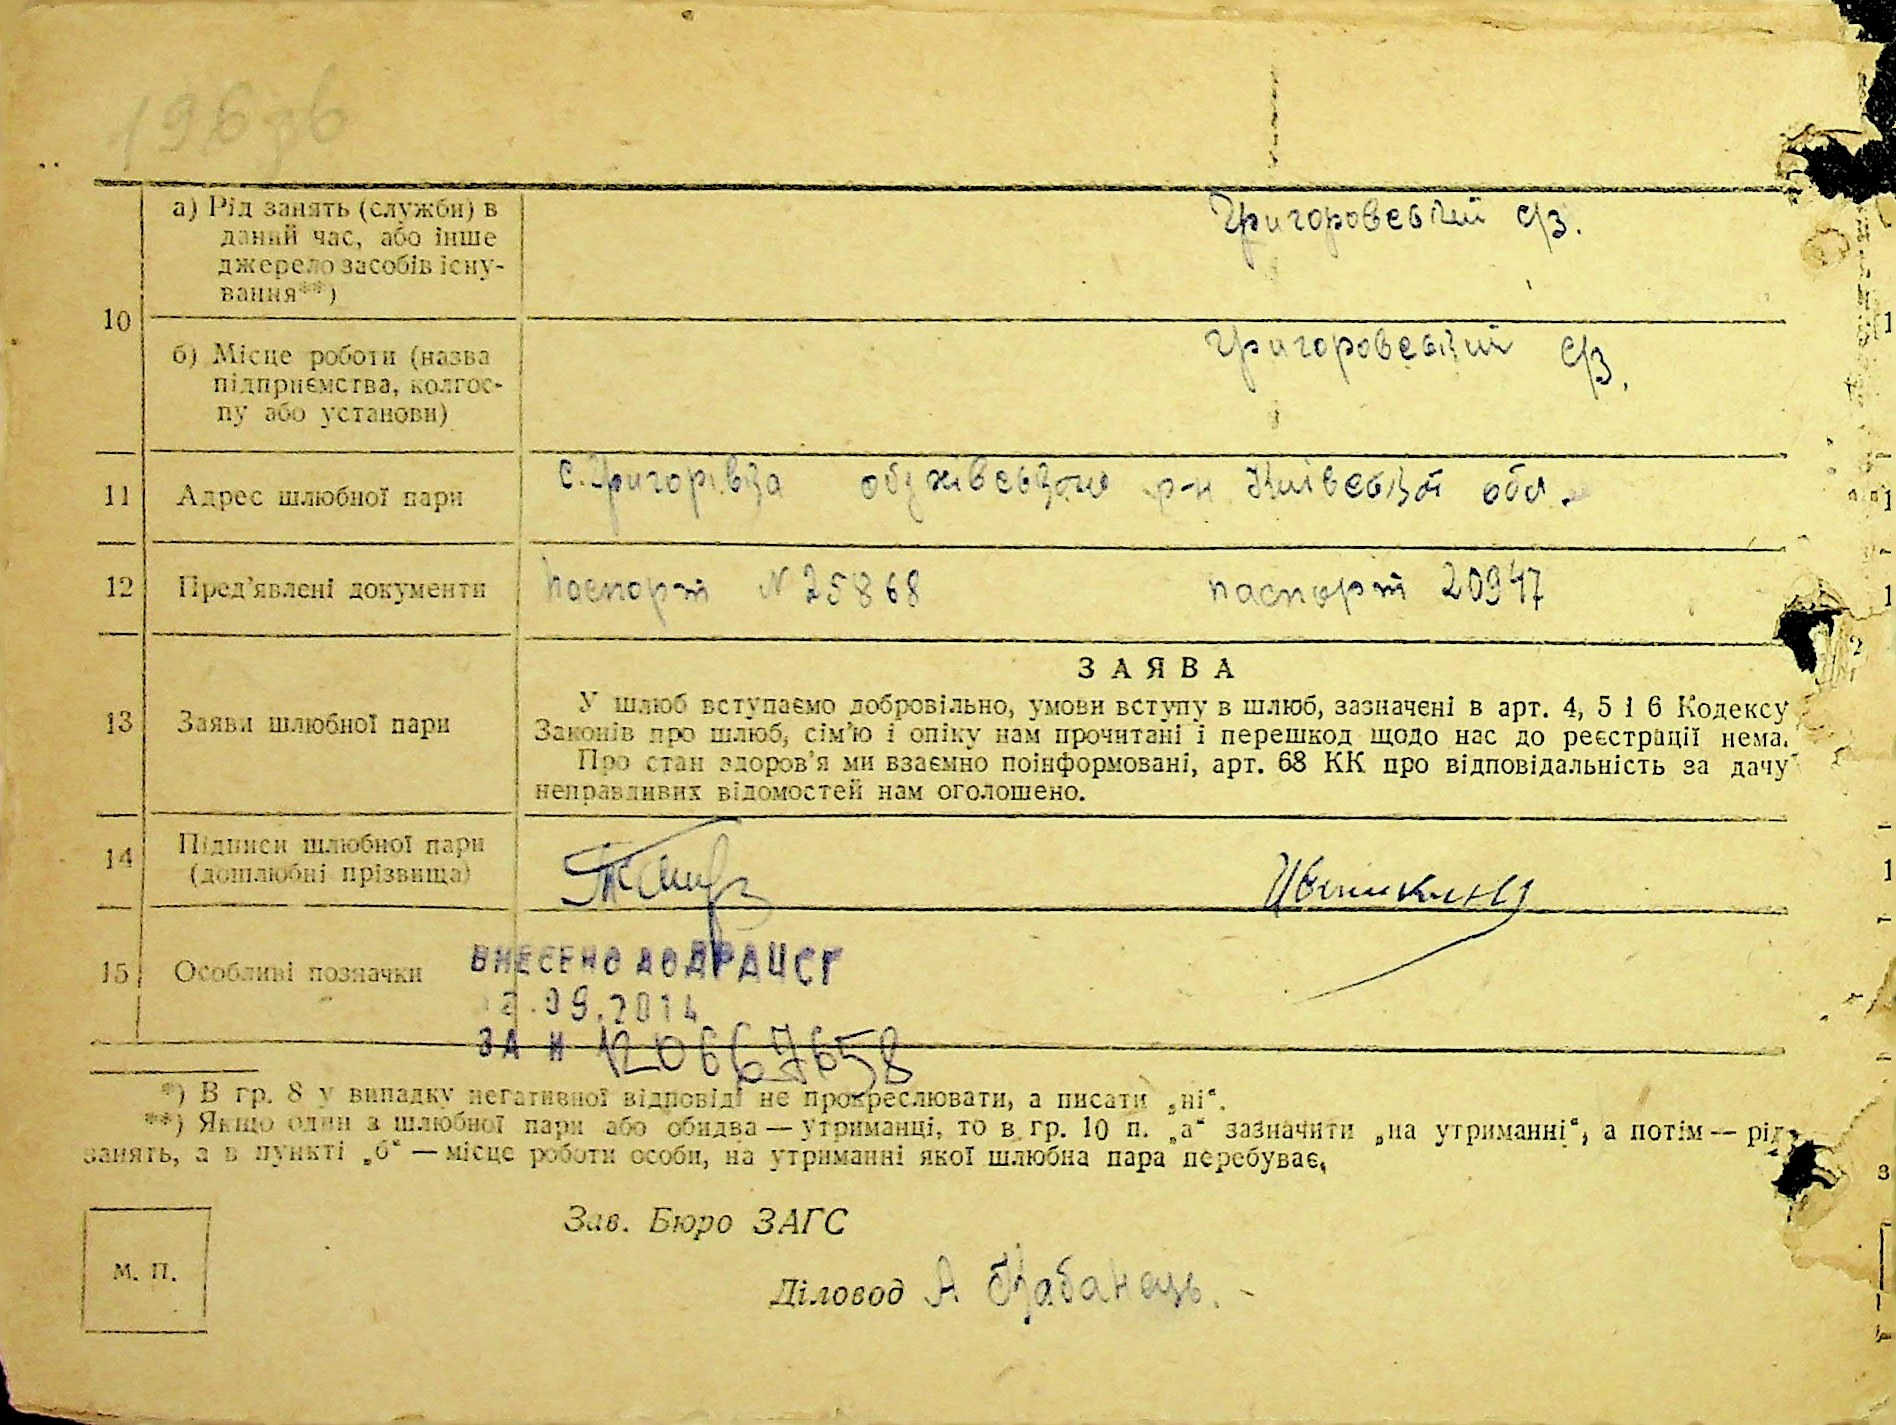 196 рб
а) Рід занять (служби) в
даний час, або інше
джерело засобів існу-
вання**)
Григоровський с/з.
10
б) Місце роботи (назва
підприємства, колгос-
пу або установи)
Григоровский с/з.
11 Адрес шлюбної пари с. Григорівка обухівського р-н Київської обл.
12 Пред'явлені документи паспорт N 25868 паспорт 20947
ЗАЯВА
13 Заяви шлюбної пари
У шлюб вступаємо добровільно, умови вступу в шлюб, зазначені в арт. 4, 5 і 6 Кодексу
Законів про шлюб, сім'ю і опіку нам прочитані і перешкод щодо нас до реєстрації нема.
Про стан здоров'я ми взаємно поінформовані, арт. 68 КК про відповідальність за дачу
неправдивих відомостей нам оголошено.
14 Підписи шлюбної пари
(дошлюбні прізвища)
15 Особливі позначки
ВНЕСЕНО ДО ДРАЦСГ
.09.2014
ЗА N 120667658
*) В гр. 8 у випадку негативної відповіді не прокреслювати, а писати „ні“.
**) Якщо один з шлюбної пари або обидва — утриманці, то в гр. 10 п. „а“ зазначити „на утриманні“, а потім — рід
занять, а в пункті „б“ — місце роботи особи, на утриманні якої шлюбна пара перебуває.
Зав. Бюро ЗАГС
м. п.
Діловод А Кабанець.